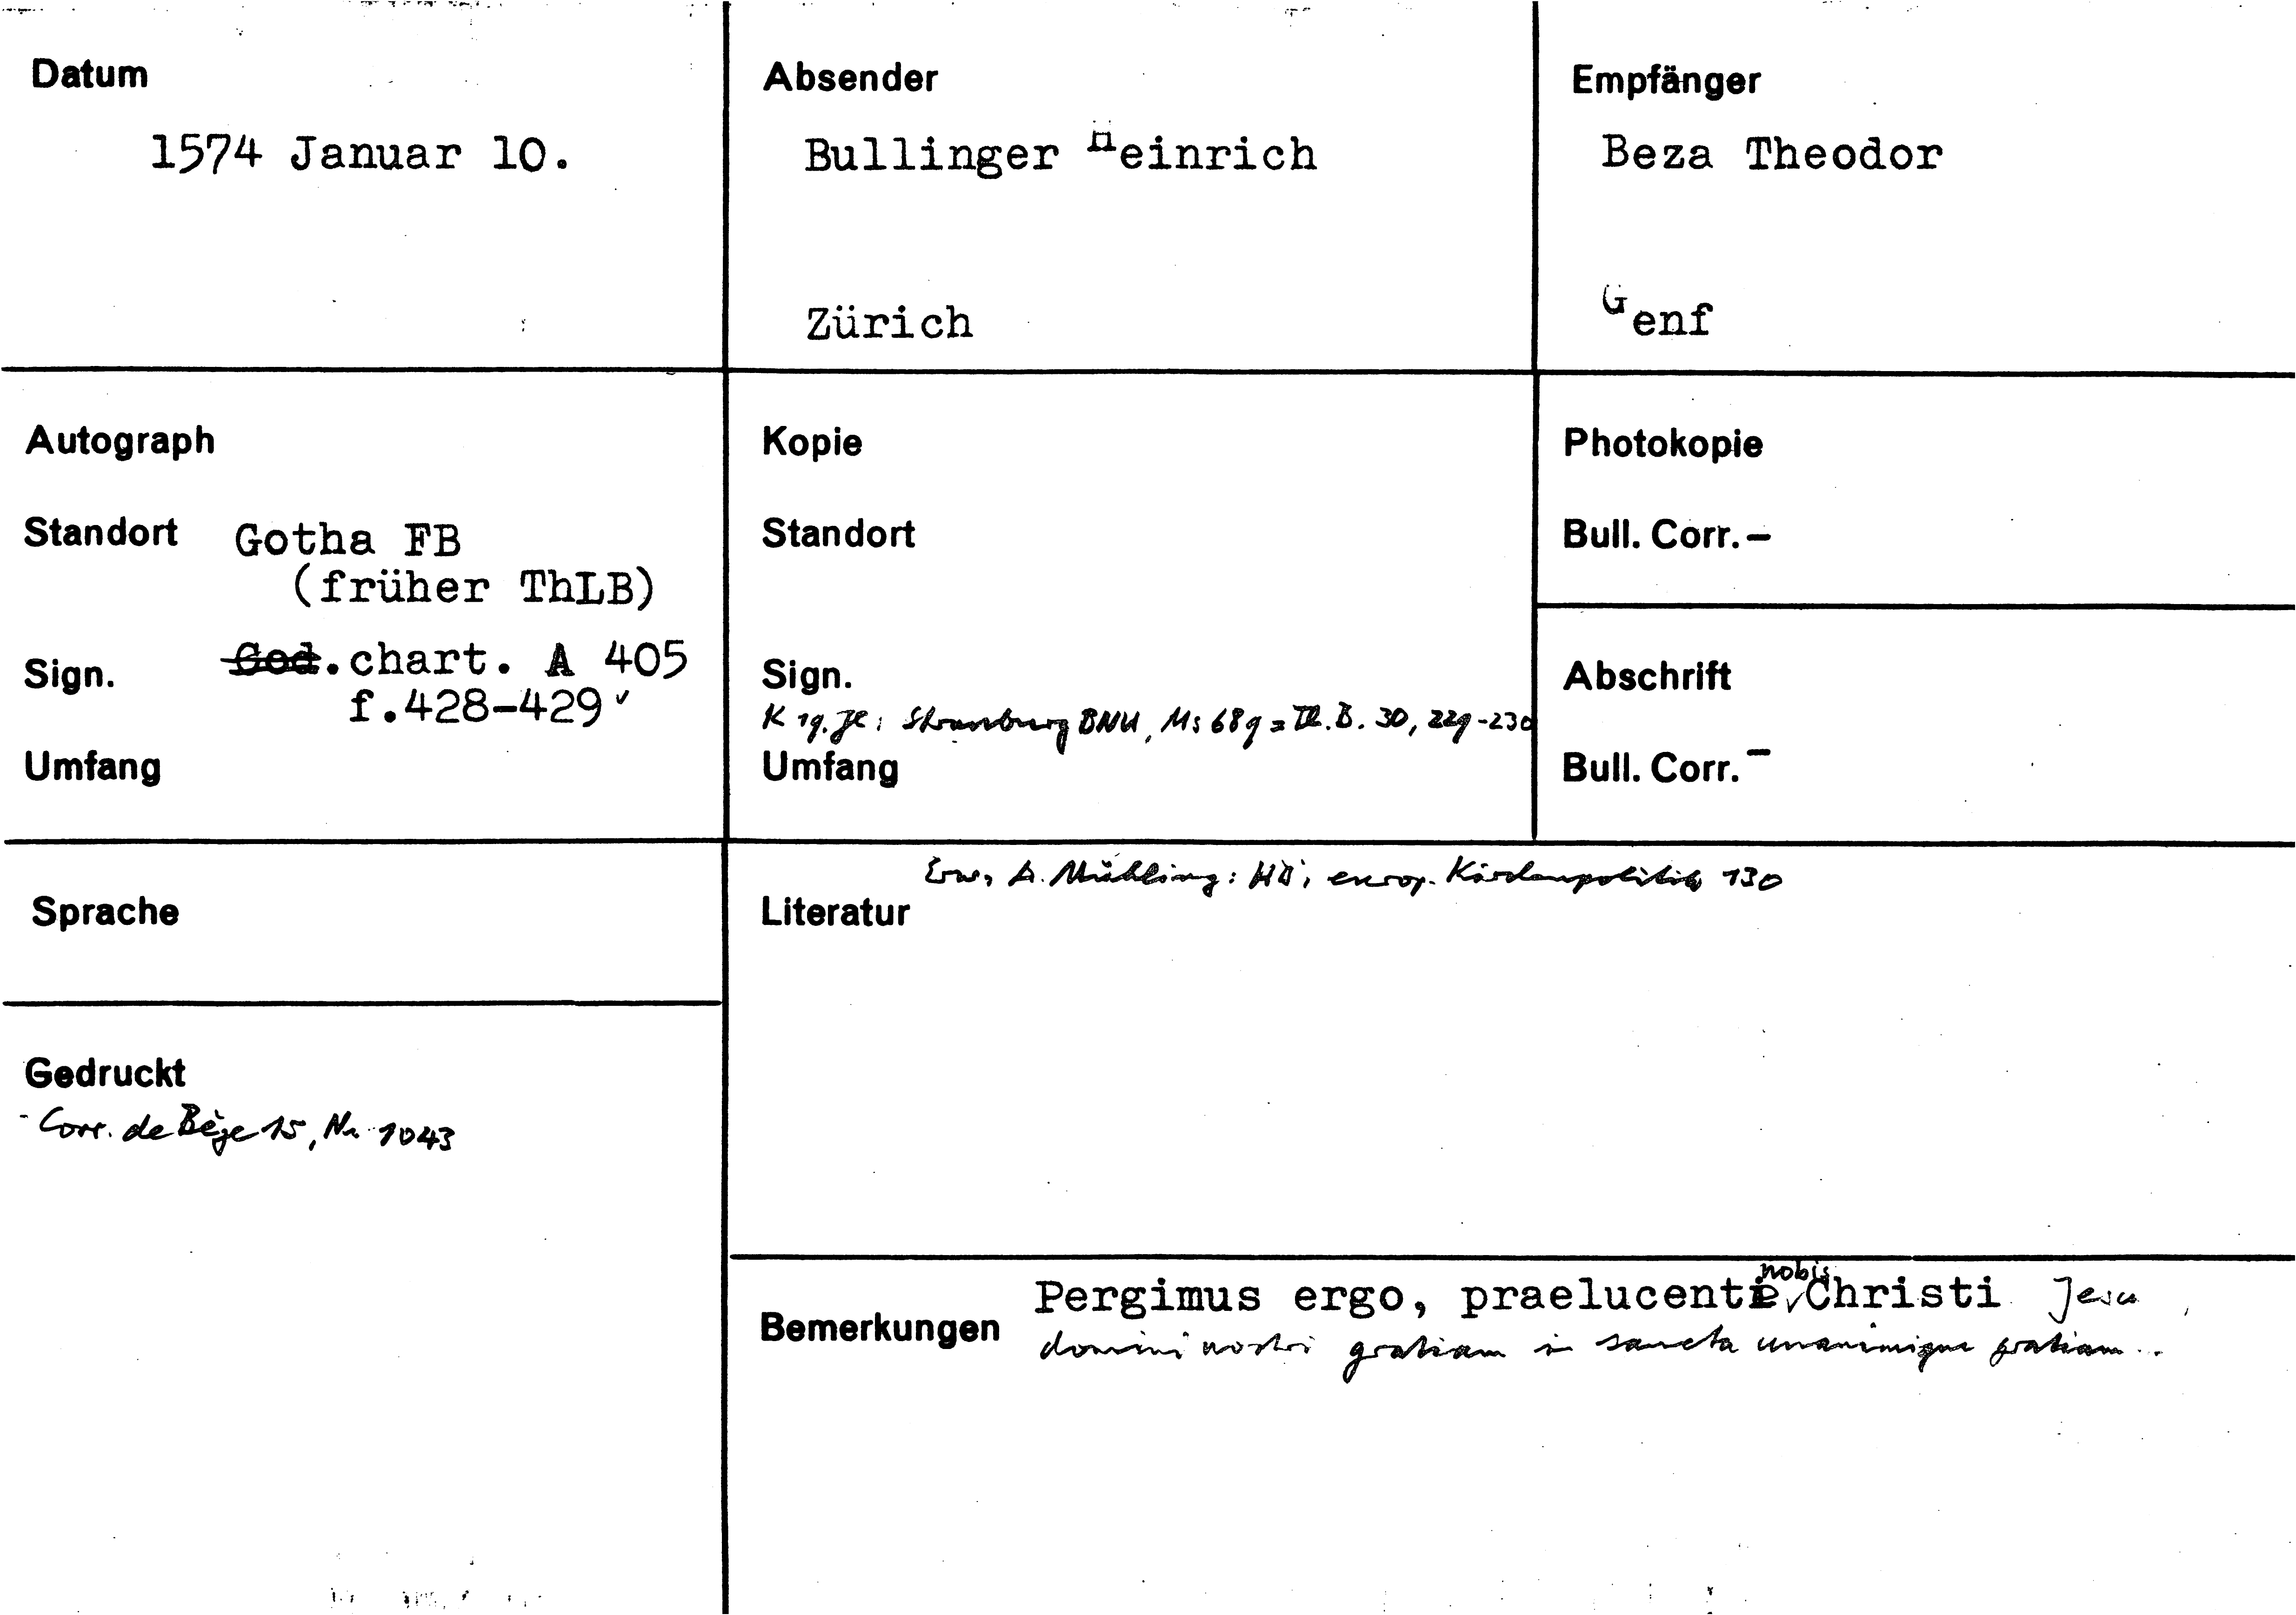 Datum
1574 Januar 10.
Absender
Bullinger Heinrich
Zürich
Empfänger
Beza Theodor
Genf
Autograph
Standort Gotha FB
(früher ThLB)
Sign. Cod.chart. A 405
f.428-429v
Umfang
Kopie
Standort
Sign.
K 19. Jh: Strassburg BNU, Ms 689 = 30, 229-230
Umfang
Photokopie
Bull. Corr. –
Abschrift
Bull. Corr. –
Sprache
Gedruckt
- Corr. de Bèze 15, Nr. 1043
Erw. A. Mühling: HB, europ. Kirchenpolitik 130
Literatur
Bemerkungen Pergimus ergo, praelucente nobis Christi Jesu
domini nostri gratiam in sancta unanimique gratiam..